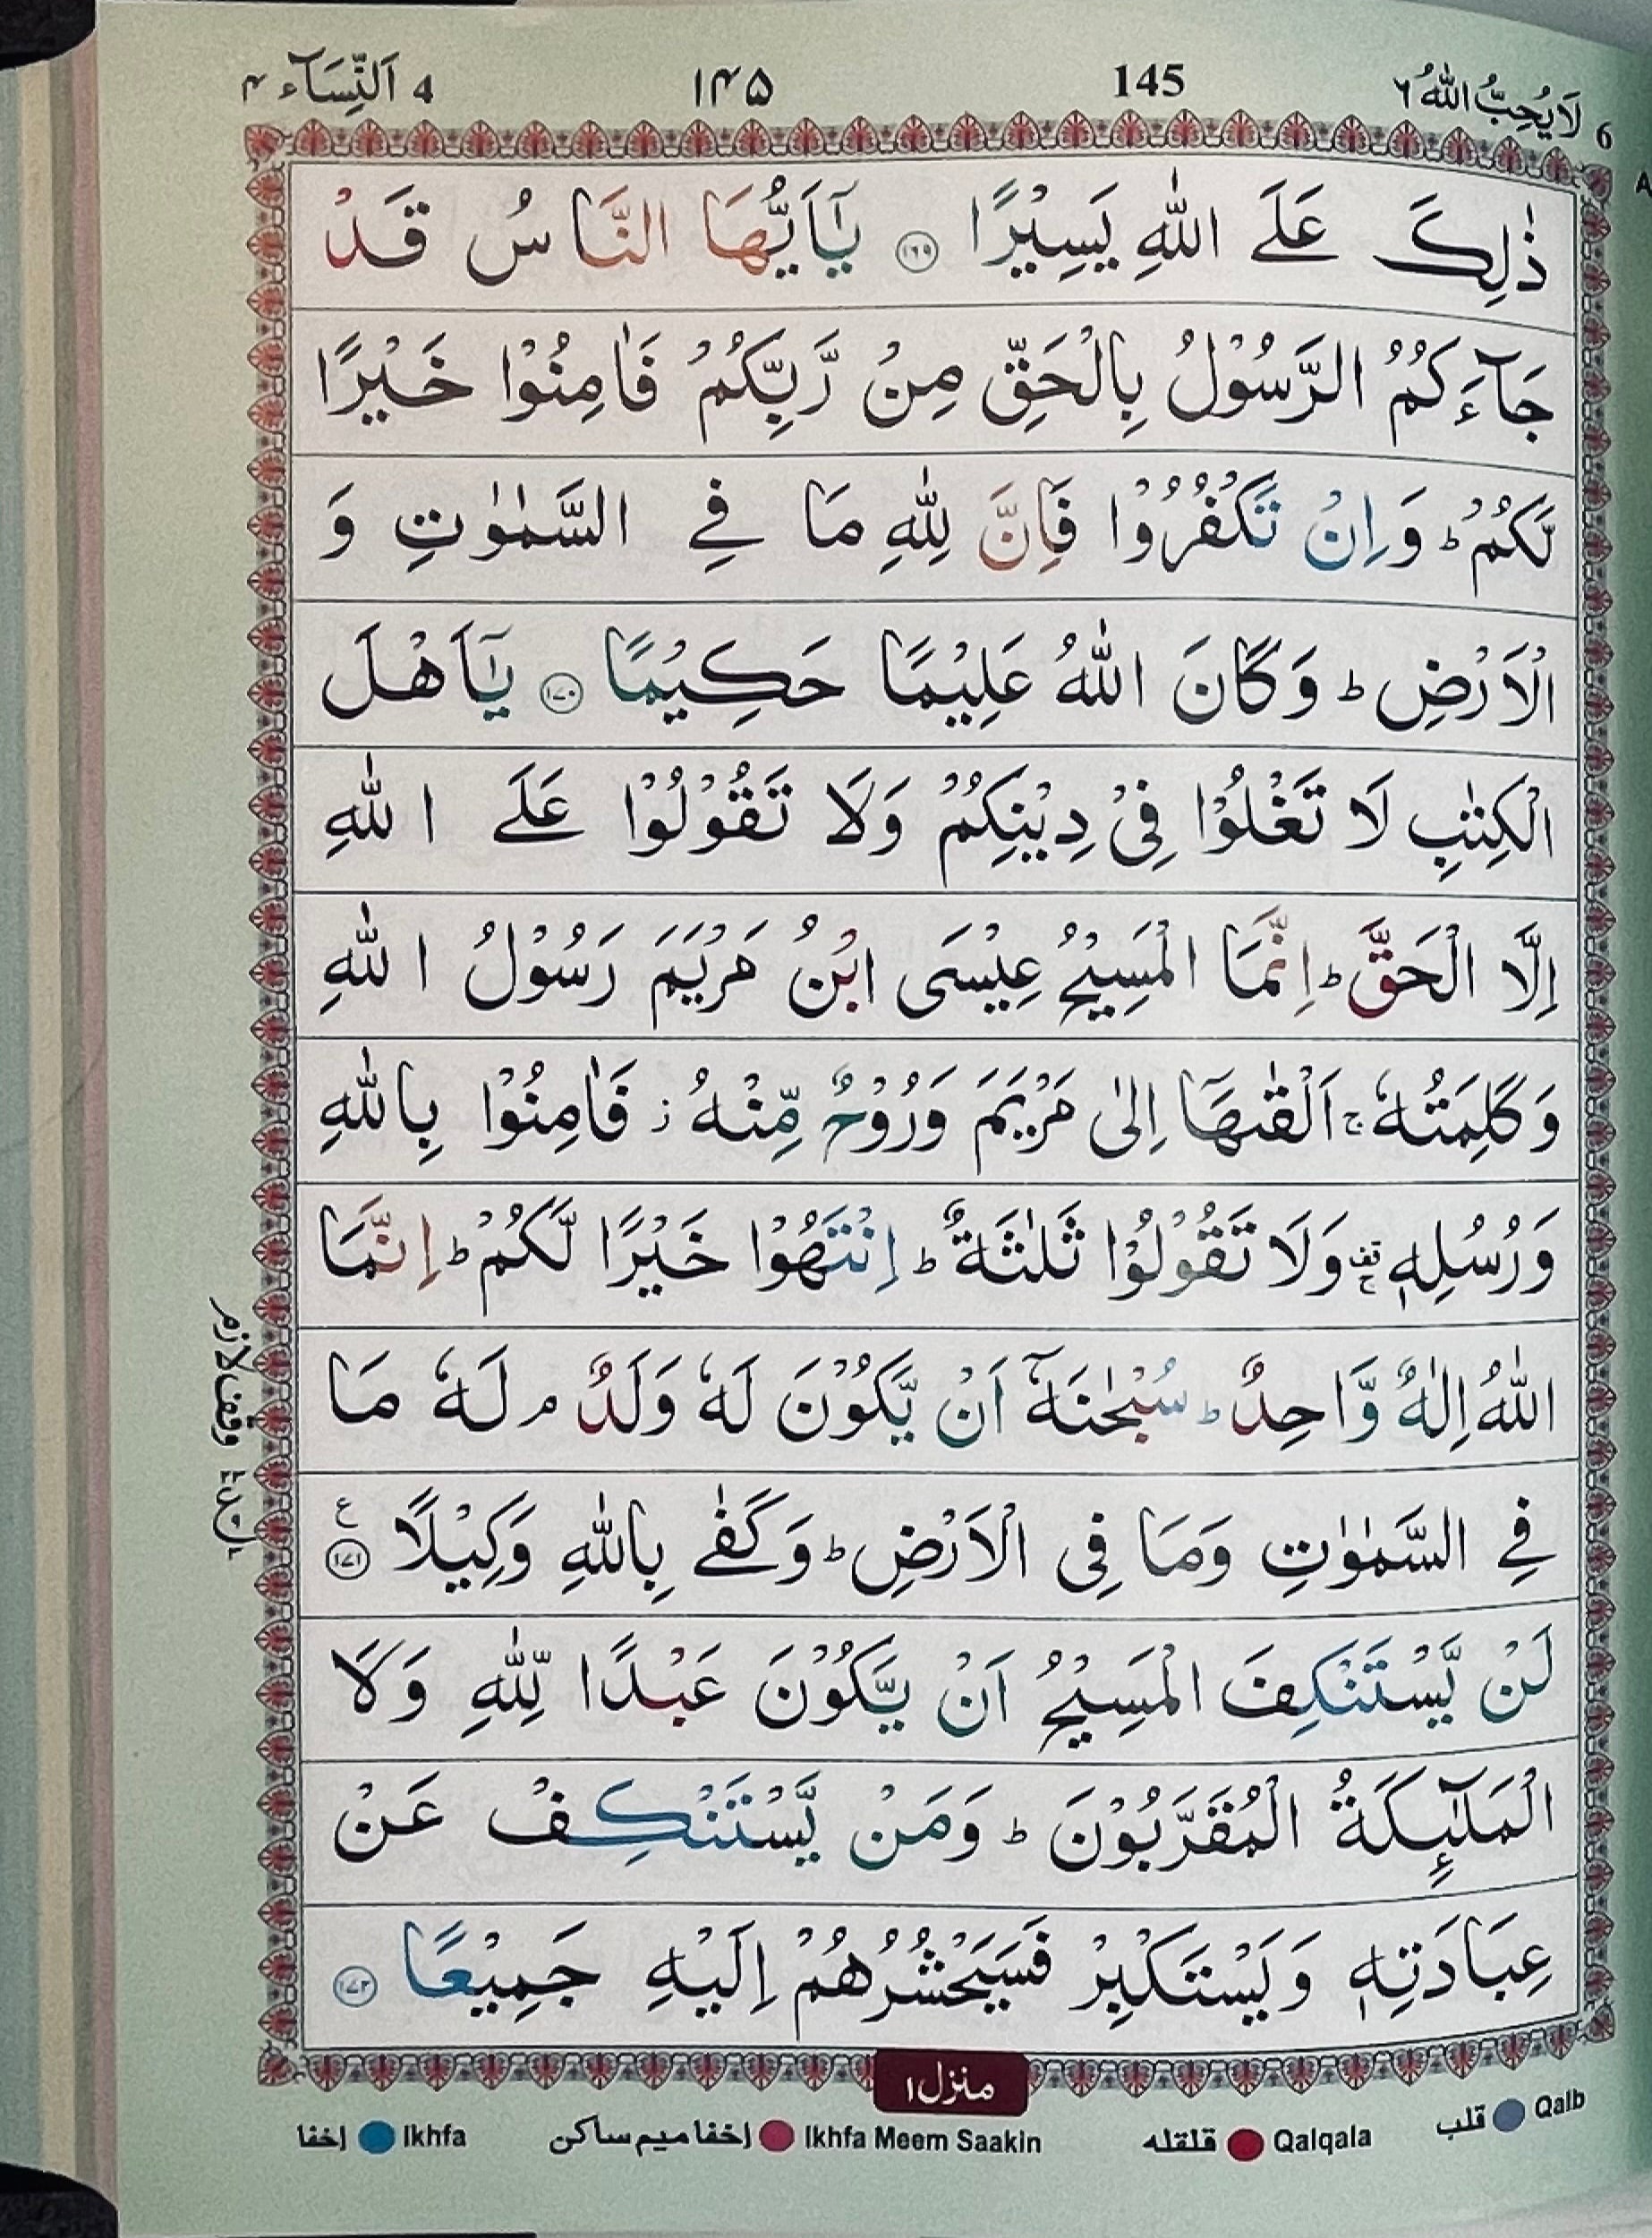 6 لَا يُحِبُّ اللّٰهُ ٦ 145 ١٤٥ 4 اَلنِّسَآء ٤
ذٰلِكَ عَلَے اللّٰهِ يَسِيْرًا ١٦٩ يٰۤاَيُّهَا النَّاسُ قَدْ
جَآءَكُمُ الرَّسُوْلُ بِالْحَقِّ مِنْ رَّبِّكُمْ فَاٰمِنُوْا خَيْرًا
لَّكُمْ ؕ وَاِنْ تَكْفُرُوْا فَاِنَّ لِلّٰهِ مَا فِے السَّمٰوٰتِ وَ
الْاَرْضِ ؕ وَكَانَ اللّٰهُ عَلِيْمًا حَكِيْمًا ١٧٠ يٰۤاَهْلَ
الْكِتٰبِ لَا تَغْلُوْا فِيْ دِيْنِكُمْ وَلَا تَقُوْلُوْا عَلَے اللّٰهِ
اِلَّا الْحَقَّ ؕ اِنَّمَا الْمَسِيْحُ عِيْسَى ابْنُ مَرْيَمَ رَسُوْلُ اللّٰهِ
وَكَلِمَتُهٗ ۚ اَلْقٰىهَاۤ اِلٰى مَرْيَمَ وَرُوْحٌ مِّنْهُ ز فَاٰمِنُوْا بِاللّٰهِ
وَرُسُلِهٖ قف وَلَا تَقُوْلُوْا ثَلٰثَةٌ ؕ اِنْتَهُوْا خَيْرًا لَّكُمْ ؕ اِنَّمَا
اللّٰهُ اِلٰهٌ وَّاحِدٌ ؕ سُبْحٰنَهٗۤ اَنْ يَّكُوْنَ لَهٗ وَلَدٌ ۘ لَهٗ مَا
فِے السَّمٰوٰتِ وَمَا فِى الْاَرْضِ ؕ وَكَفٰے بِاللّٰهِ وَكِيْلًا ١٧١ ع
لَنْ يَّسْتَنْكِفَ الْمَسِيْحُ اَنْ يَّكُوْنَ عَبْدًا لِّلّٰهِ وَلَا
الْمَلٰٓئِكَةُ الْمُقَرَّبُوْنَ ؕ وَمَنْ يَّسْتَنْكِفْ عَنْ
عِبَادَتِهٖ وَيَسْتَكْبِرْ فَسَيَحْشُرُهُمْ اِلَيْهِ جَمِيْعًا ١٧٢
وقف لازم
منزل ١
Qalb قلب Qalqala قلقله Ikhfa Meem Saakin إخفا ميم ساكن Ikhfa إخفا